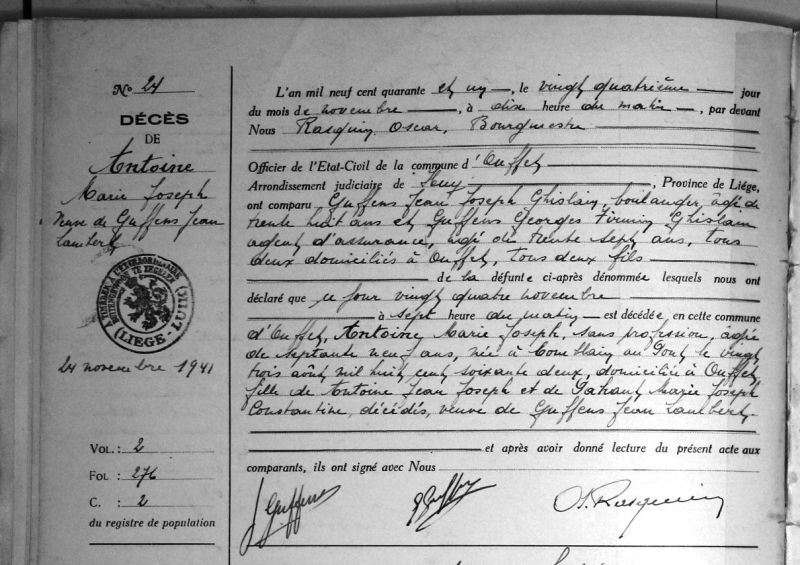 No 24
DÉCÈS
DE
Antoine
Marie Joseph
Veuve de Guffens Jean
Lambert
A TIMBRER A L'EXTRAORDINAIRE
(LIÈGE. - LUIK)
24 novembre 1941
VOL. : 2
FOL : 276
C. : 2
du registre de population
L'an mil neuf cent quarante et un, le vingt quatrième jour
du mois de novembre, à dix heure du matin, par devant
Nous Rasquin, Oscar, Bourgmestre
Officier de l'Etat-Civil de la commune d'Ouffet
Arrondissement judiciaire de Huy, Province de Liége,
ont comparu Guffens Jean Joseph Ghislain, boulanger, âgé de
trente huit ans et Guffens Georges Firmin Ghislain
agent d'assurance, âgé de trente sept ans, tous
deux domiciliés à Ouffet, tous deux fils
de la défunte ci-après dénommée lesquels nous ont
déclaré que ce jour vingt quatre novembre
à sept heure du matin est décédée, en cette commune
d'Ouffet, Antoine Marie Joseph, sans profession, âgée
de septante neuf ans, née à Comblain au Pont le vingt
trois août mil huit cent soixante deux, domiciliée à Ouffet,
fille de Antoine Jean Joseph et de Marie Joseph
Constantine, décédés, veuve de Guffens Jean Lambert.
et après avoir donné lecture du présent acte aux
comparants, ils ont signé avec Nous
J Guffens
G Guffens
O. Rasquin